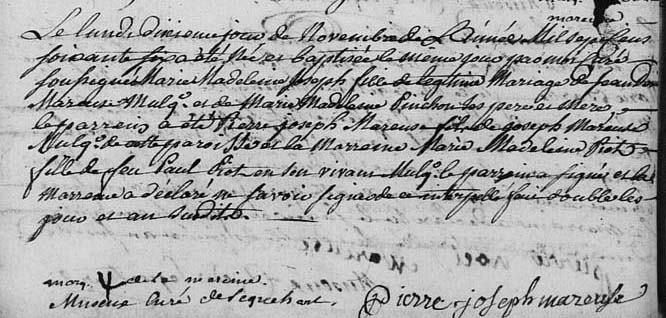 mareuse
Le lundi dixieme jour de Novembre de L'Année Mil sept Cens
soixante six a été Née et baptisée le meme jour par moi Curé
soussigné Marie Madeleine Joseph fille de legitime Mariage de Jean
Mareuse Mulqr. et de Marie Madeleine Pinchon les pere et mere
le parrein a été Pierre joseph Mareuse fils de joseph Mareuse
Mulqr. de cette paroisse et la Marreine Marie Madeleine Piot
fille de feu Paul Piot en son vivant Mulqr. le parrein a signé et la
Marreine a déclaré ne savoir signer de ce interpellé fait double les
jour et an susdits.
marq de la mareine.
Curé de Lequehart. Pierre joseph mareuse